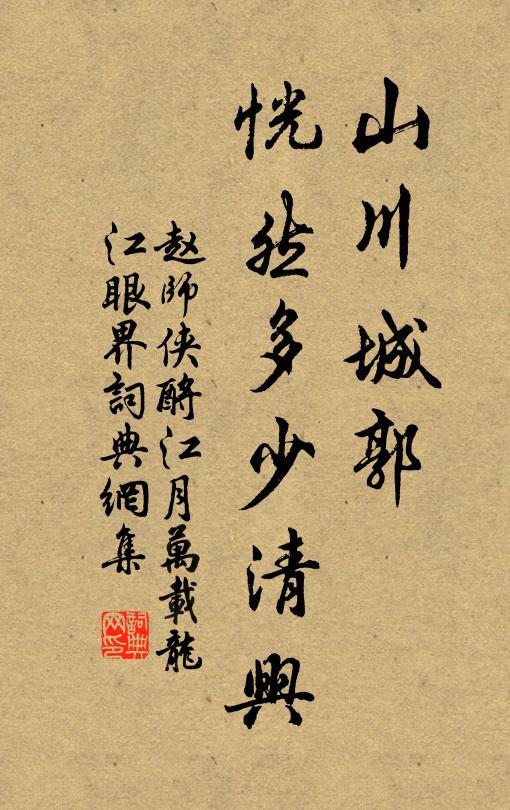 山川城郭
恍然多少清興
赵師侠酹江月萬載龍
江眼界詞典網集
詞典
网印